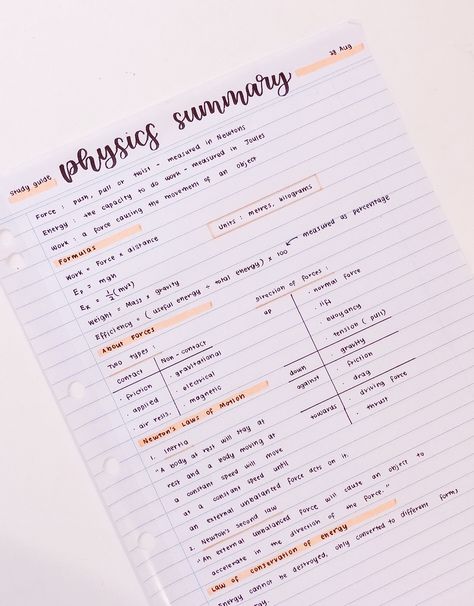 28 Aug
study guide
physics summary
Force : push, pull or twist - measured in Newtons
Energy : the capacity to do work - measured in Joules
Work : a force causing the movement of an object
Formulas
Units : metres, kilograms
Work = Force x distance
Ep = mgh
Ek = ½(mv²)
Weight = Mass x gravity
Efficiency = ( useful energy ÷ total energy) x 100 ← measured as percentage
About Forces
Two types :
contact Non-contact
· friction · gravitational
· applied · electrical
· air resis. · magnetic
direction of forces :
up · normal force
· lift
· buoyancy
· tension ( pull)
down · gravity
against · friction
· drag
towards · driving force
· thrust
Newton's Laws of Motion
1. inertia
"A body at rest will stay at
rest and a body moving at
a constant speed will move
at a constant speed until
an external unbalanced force acts on it.
2. Newton's second law
"An external unbalanced force will cause an object to
accelerate in the direction of the force."
Law of conservation of energy
Energy cannot be destroyed, only converted to different forms